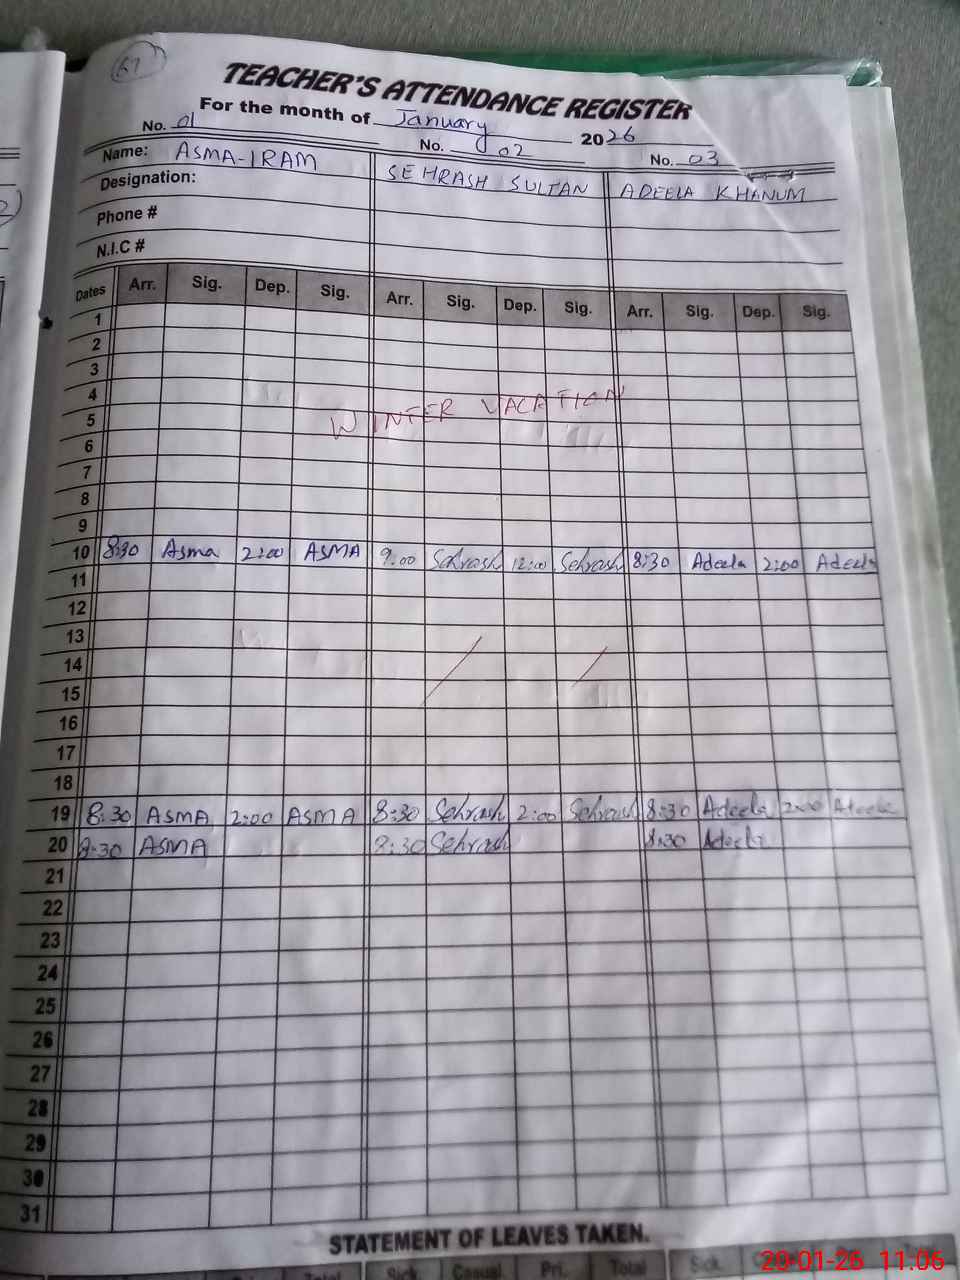 67
TEACHER'S ATTENDANCE REGISTER
For the month of January 2026
No. 01 No. 02 No. 03
Name: ASMA-IRAM SEHRASH SULTAN ADEELA KHANUM
Designation:
Phone #
N.I.C #
Dates Arr. Sig. Dep. Sig. Arr. Sig. Dep. Sig. Arr. Sig. Dep. Sig.
1
2
3
4
WINTER VACATION
5
6
7
8
9
10 8:30 Asma 2:00 ASMA 9:00 Sehrash 12:00 Sehrash 8:30 Adeela 2:00 Adeela
11
12
13
14
15
16
17
18
19 8:30 ASMA 2:00 ASMA 8:30 Sehrash 2:00 Sehrash 8:30 Adeela 2:00 Adeela
20 8:30 ASMA 8:30 Sehrash 8:30 Adeela
21
22
23
24
25
26
27
28
29
30
31
STATEMENT OF LEAVES TAKEN.
Total Sick Casual Pri. Total Sick
20-01-26 11:05